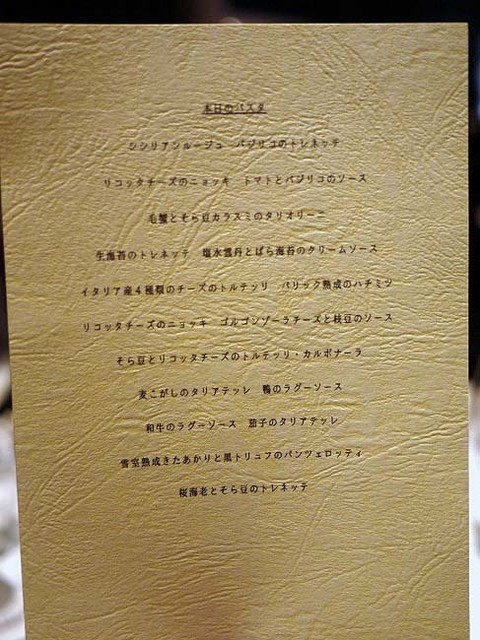 本日のパスタ
シシリアンルージュ　バジリコのトレネッテ
リコッタチーズのニョッキ　トマトとバジリコのソース
毛蟹とそら豆カラスミのタリオリーニ
生海苔のトレネッテ　塩水雲丹とばら海苔のクリームソース
イタリア産４種類のチーズのトルテッリ　バリック熟成のハチミツ
リコッタチーズのニョッキ　ゴルゴンゾーラチーズと枝豆のソース
そら豆とリコッタチーズのトルテッリ・カルボナーラ
麦こがしのタリアテッレ　鴨のラグーソース
和牛のラグーソース　茄子のタリアテッレ
雪室熟成きたあかりと黒トリュフのパンツェロッティ
桜海老とそら豆のトレネッテ